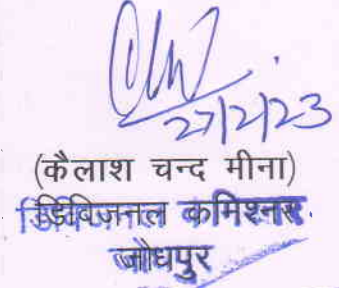 27/2/23
(कैलाश चन्द मीना)
डिविजनल कमिश्नर.
जोधपुर